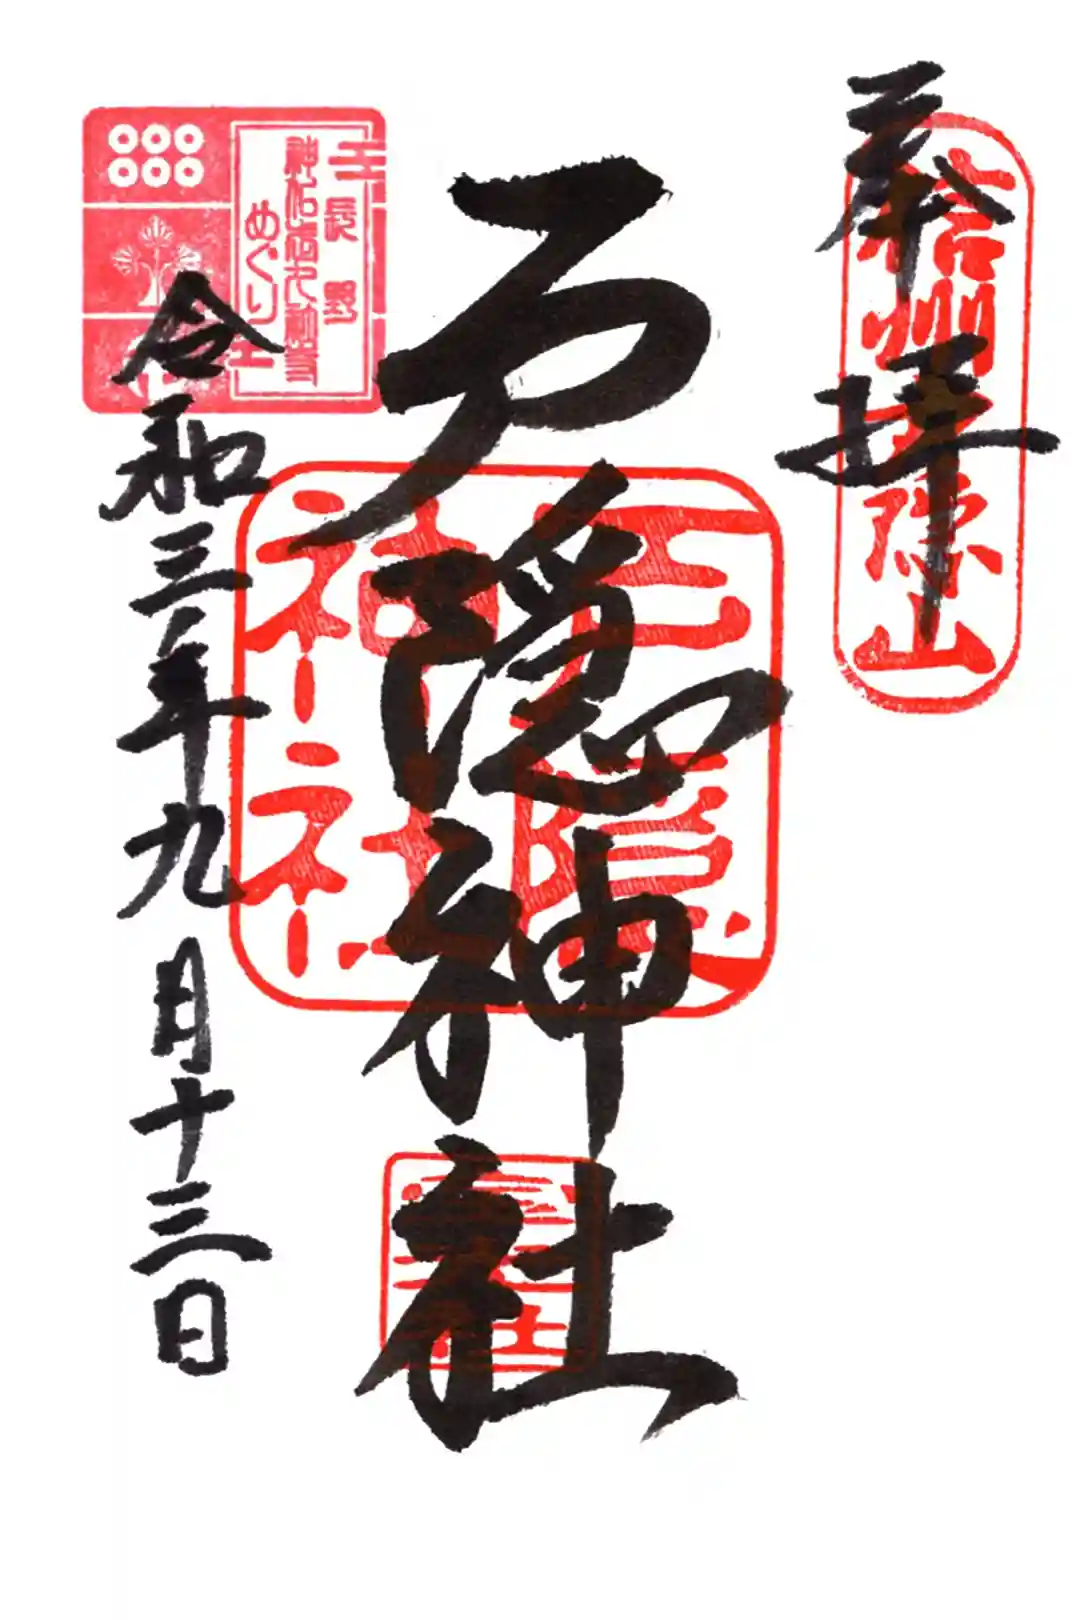 奉拝
信州戸隠山
戸隠神社
戸隠
神社
長野
めぐり
令和三年九月十三日